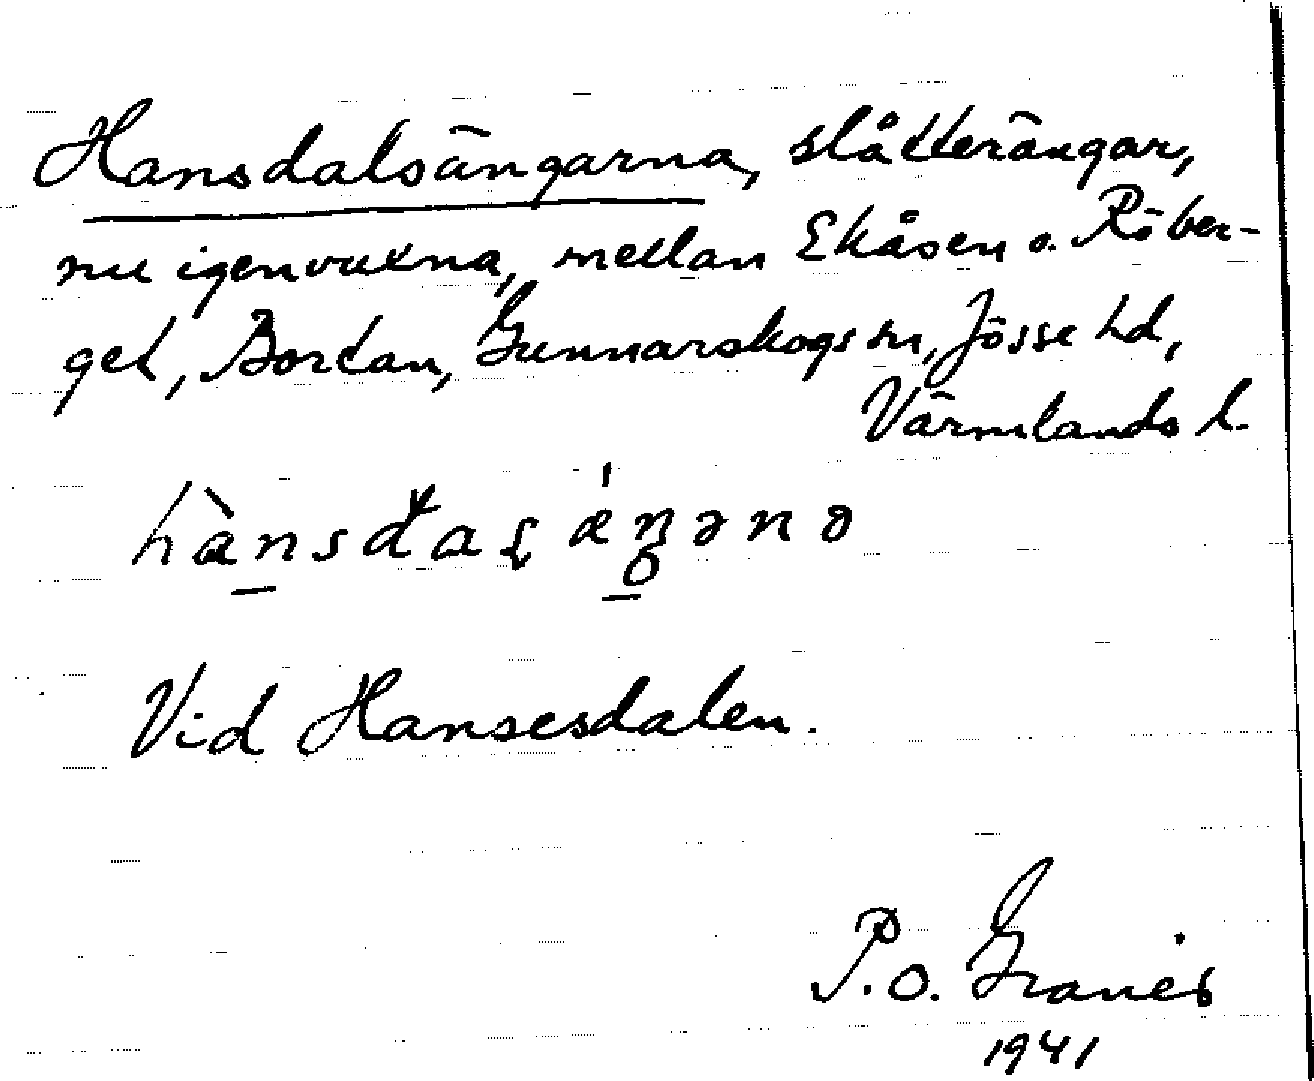 Hansdalsängarna, slåtterängar,
nu igenvuxna, mellan Ekåsen o. Röber-
get, Bortan, Gunnarskogs sn, Jösse hd,
Värmlands l.
Vid Hansesdalen.
P.O. Granér
1941